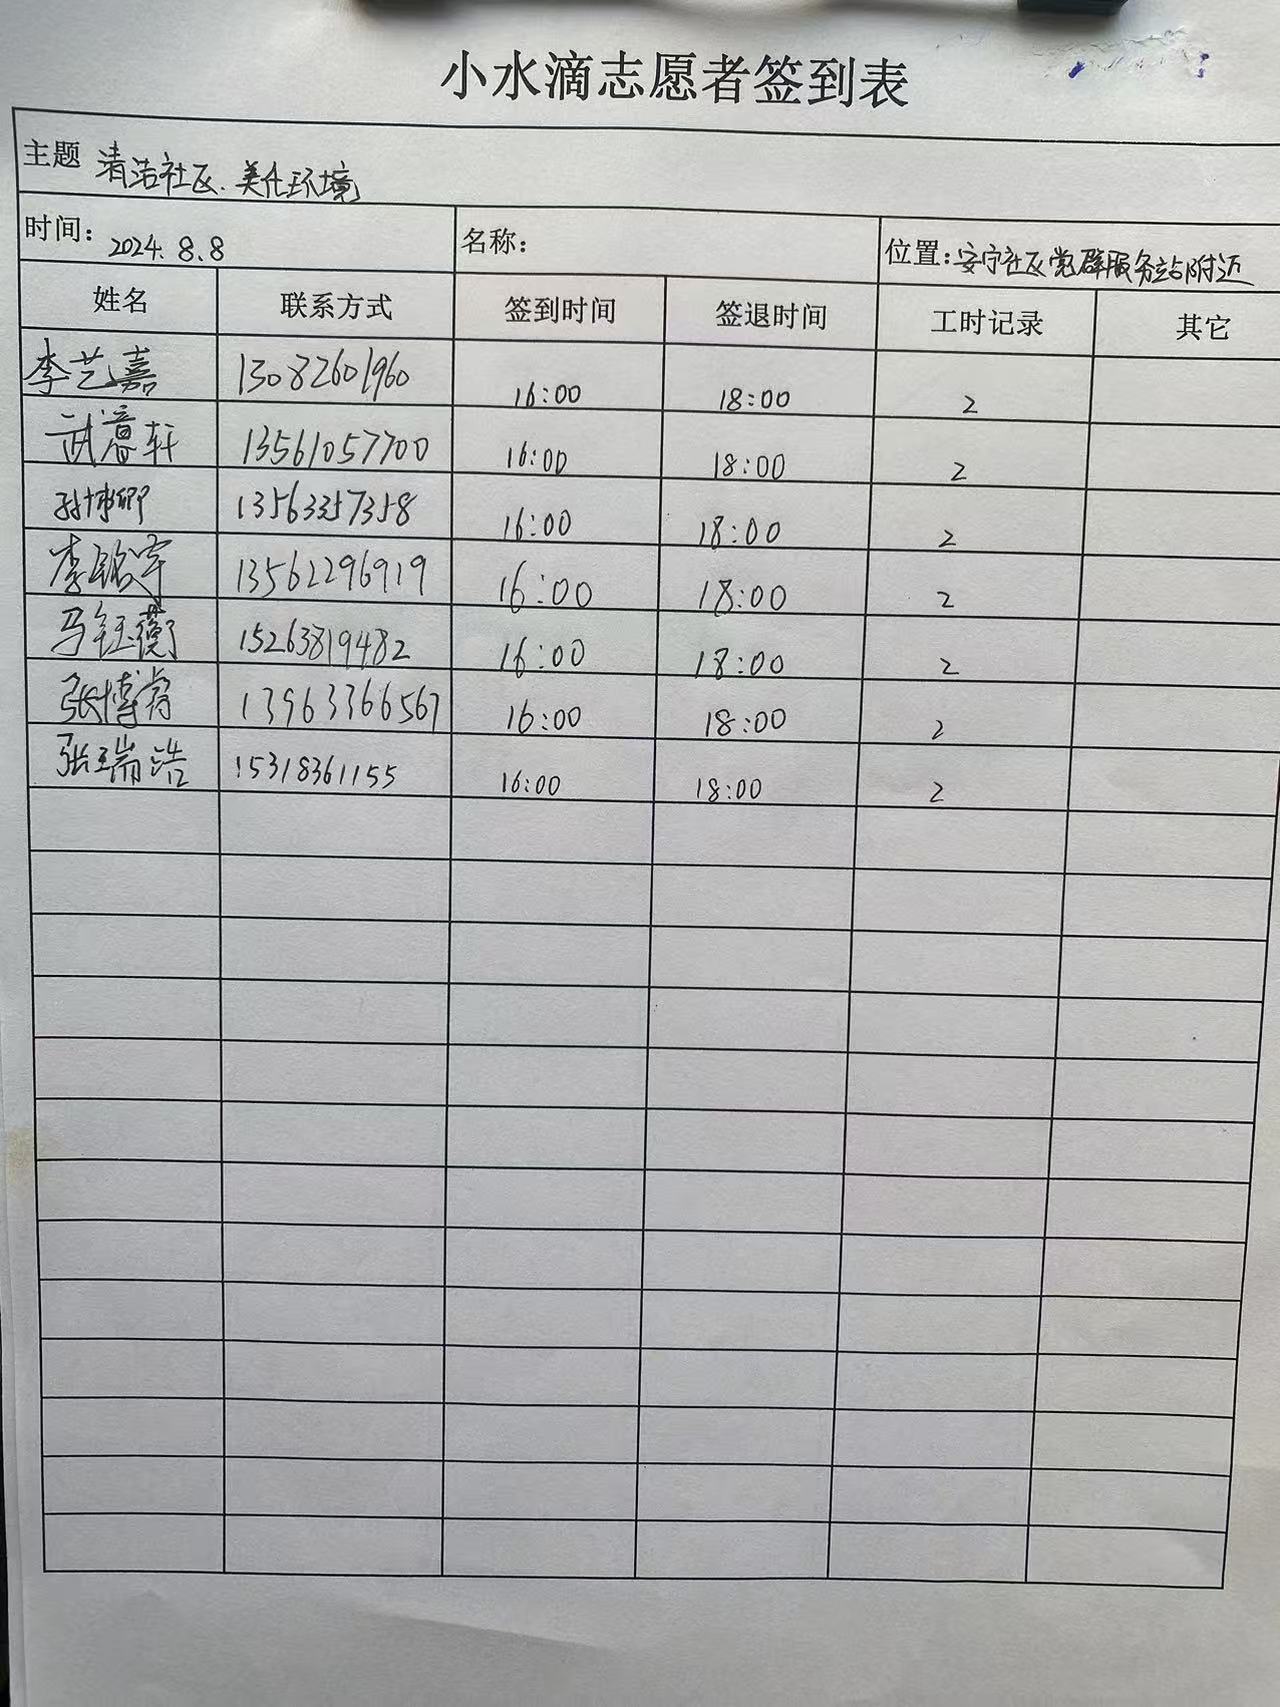 小水滴志愿者签到表
主题 清洁社区.美化环境
时间: 2024.8.8 名称: 位置:安宁社区党群服务站附近
姓名 联系方式 签到时间 签退时间 工时记录 其它
李艺嘉 13082601960 16:00 18:00 2
武睿轩 13561057700 16:00 18:00 2
孙博卿 13563357358 16:00 18:00 2
李铭宇 13562296919 16:00 18:00 2
马钰蘅 15263819482 16:00 18:00 2
张博睿 13963366567 16:00 18:00 2
张瑞浩 15318361155 16:00 18:00 2